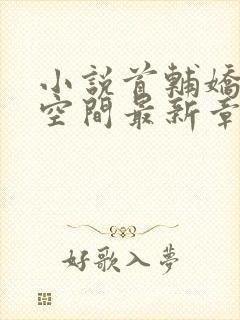 小說首輔嬌
空間最新章
好歌入夢